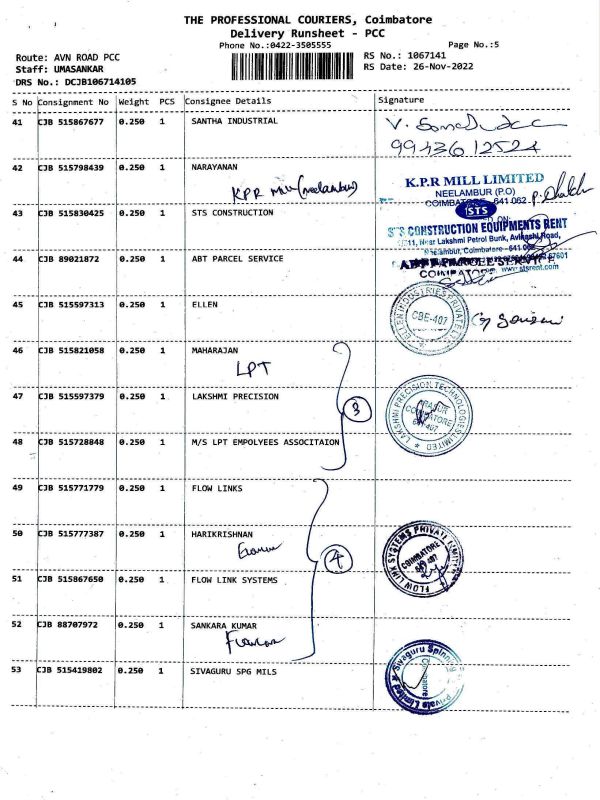 THE PROFESSIONAL COURIERS, Coimbatore
Delivery Runsheet - PCC
Phone No.:0422-3505555
Page No.:5
Route: AVN ROAD PCC
Staff: UMASANKAR
DRS No.: DCJB106714105
RS No.: 1067141
RS Date: 26-Nov-2022
S No Consignment No Weight PCS Consignee Details Signature
41 CJB 515867677 0.250 1 SANTHA INDUSTRIAL
9943612524
42 CJB 515798439 0.250 1 NARAYANAN
KPR Mill (neelambur)
K.P.R MILL LIMITED
NEELAMBUR (P.O)
COIMBATORE - 641 062
43 CJB 515830425 0.250 1 STS CONSTRUCTION
STS
STS CONSTRUCTION EQUIPMENTS RENT
Near Lakshmi Petrol Bunk, Avinashi Road,
Neelambur, Coimbatore - 641 062
44 CJB 89021872 0.250 1 ABT PARCEL SERVICE
ABT PARCEL SERVICE
COIMBATORE
45 CJB 515597313 0.250 1 ELLEN
ELLEN INDUSTRIES PRIVATE
CBE-407
46 CJB 515821058 0.250 1 MAHARAJAN
LPT
47 CJB 515597379 0.250 1 LAKSHMI PRECISION
3
LAKSHMI PRECISION TECHNOLOGIES LIMITED
COIMBATORE
48 CJB 515728848 0.250 1 M/S LPT EMPOLYEES ASSOCITAION
49 CJB 515771779 0.250 1 FLOW LINKS
50 CJB 515777387 0.250 1 HARIKRISHNAN
4
FLOW LINK SYSTEMS PRIVATE LIMITED
COIMBATORE
51 CJB 515867650 0.250 1 FLOW LINK SYSTEMS
52 CJB 88707972 0.250 1 SANKARA KUMAR
53 CJB 515419802 0.250 1 SIVAGURU SPG MILS
Sivaguru Spinning
Private Limited
Coimbatore